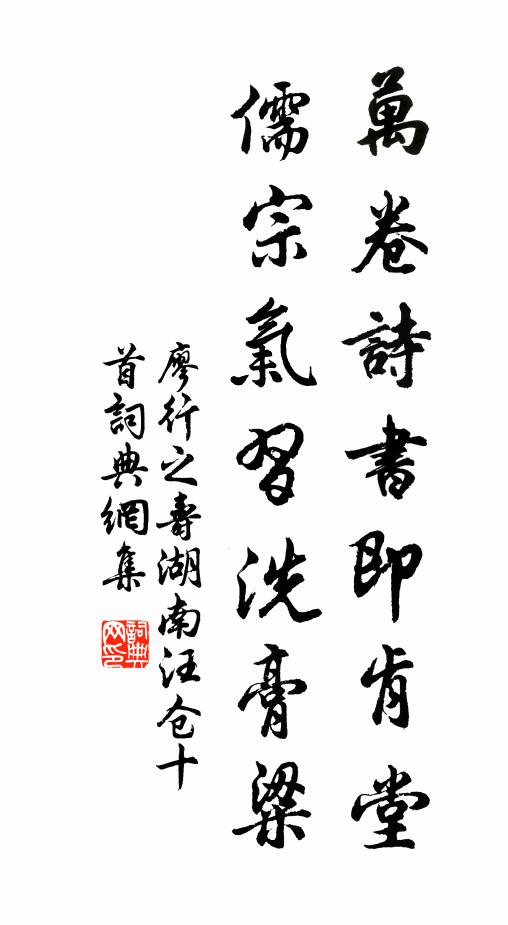 萬卷詩書即肯堂
儒宗氣習洗膏粱
廖行之壽湖南汪仓十
首詞典網集
詞典网印